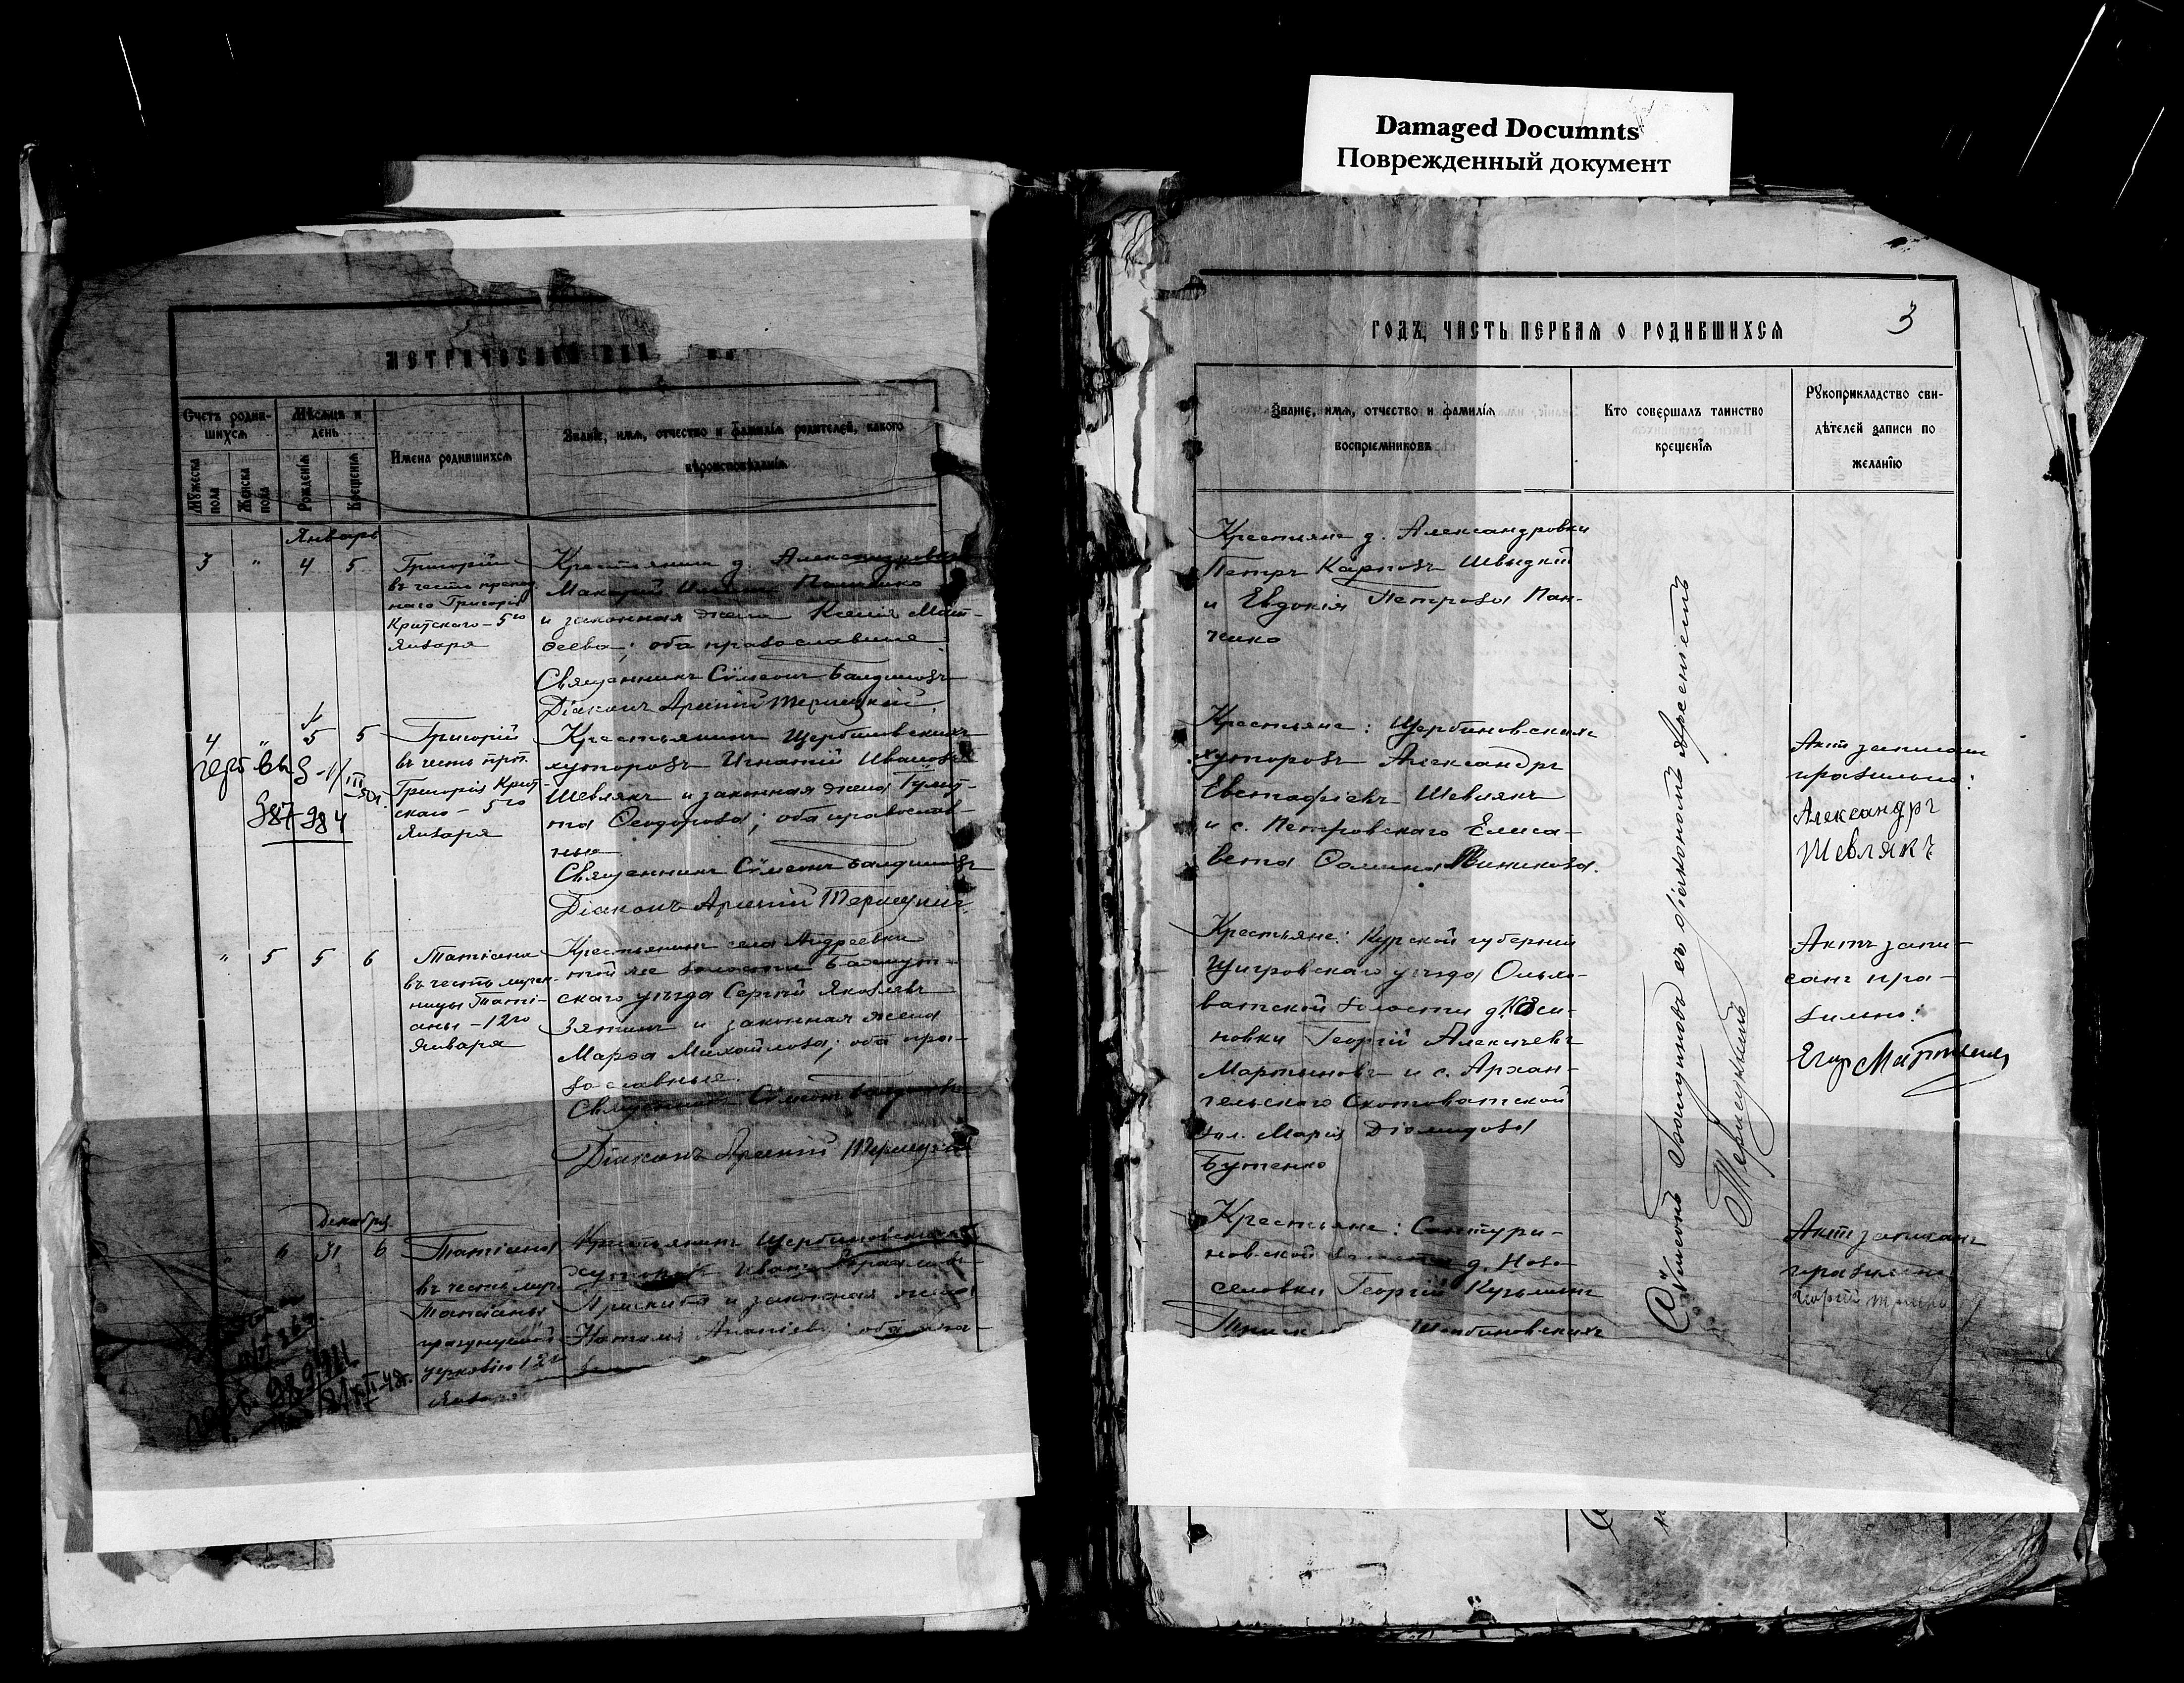 Damaged Documnts
Поврежденный документ
МЕТРИЧЕСКОЙ
Счетъ родив-
шихся
Мѣсяцъ и
день
Мужеска
пола
Женска
пола
Рожденія
Крещенія
Имена родившихся
Званіе, имя, отчество и фамилія родителей, какого
вѣроисповѣданія
Январь
3 " 4 5
Григорій
въ честь препод.
наго Григорія
Критскаго - 5го
Января
Крестьянинъ д. Александровки
Макарій
и законная жена Ксенія Мат-
ѳеева; оба православные
Священникъ Сѵмеонъ Балдиновъ
Діаконъ Арсеній
4 " 5 5
Григорій
въ честь преп.
Григорія Крит-
скаго - 5го
Января
387-984
Крестьянинъ Щербиновскихъ
хуторовъ Игнатій Ивановъ
Шевлякъ и законная жена
Ѳеодорова; оба православ-
ные
Священникъ Сѵмеонъ Балдиновъ
Діаконъ Арсеній
" 5 5 6
Татіана
въ честь муче-
ницы Тати-
аны - 12го
Января
Крестьянинъ села Андреевки
той же волости Бахмут-
скаго уѣзда Сергій Яковлевъ
Зятинъ и законная жена
Марѳа Михайлова; оба пра-
вославные.
Священникъ Сѵмеонъ
Діаконъ Арсеній
Декабря
" 6 31 6
Татіана
въ честь муч.
Татіаны
празднуемой
церковію 12го
Января
Крестьянинъ Щербиновскихъ
хуторовъ Иванъ
и законная жена
Наталія; оба пра-
ГОДЪ, ЧАСТЬ ПЕРВАЯ О РОДИВШИХСЯ
3
Званіе, имя, отчество и фамилія
воспріемниковъ
Кто совершалъ таинство
крещенія
Рукоприкладство сви-
дѣтелей записи по
желанію
Крестьяне д. Александровки
Петръ Карповъ Швыдкій
и Евдокія Петрова Пан-
ченко
Крестьяне: Щербиновскихъ
хуторовъ Александръ
Евстафіевъ Шевлякъ
и с. Петровскаго Елиса-
вета
Актъ записанъ
правильно:
Александръ
Шевлякъ
Крестьяне: Курской губерніи
Щигровскаго уѣзда Ольхо-
ватской волости д.
новки Георгій Алексѣевъ
Мартыновъ и с. Архан-
гельскаго Скотоватской
вол. Марія Діомидова
Бутенко
Актъ запи-
санъ пра-
вильно:
Егор Мартынов
Крестьяне: Сантури-
новской волости д. Ново-
селовки Георгій Кузьминъ
Щербиновскихъ
Актъ записанъ
правильно
Георгій
Сѵмеонъ Балдиновъ съ діакономъ Арсеніемъ